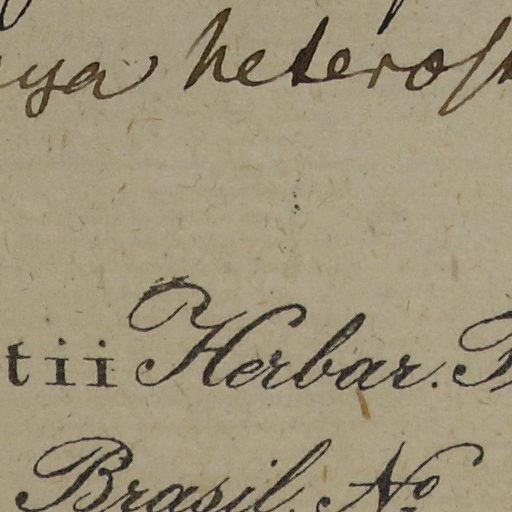 heterost
tii Herbar.
Brasil. No